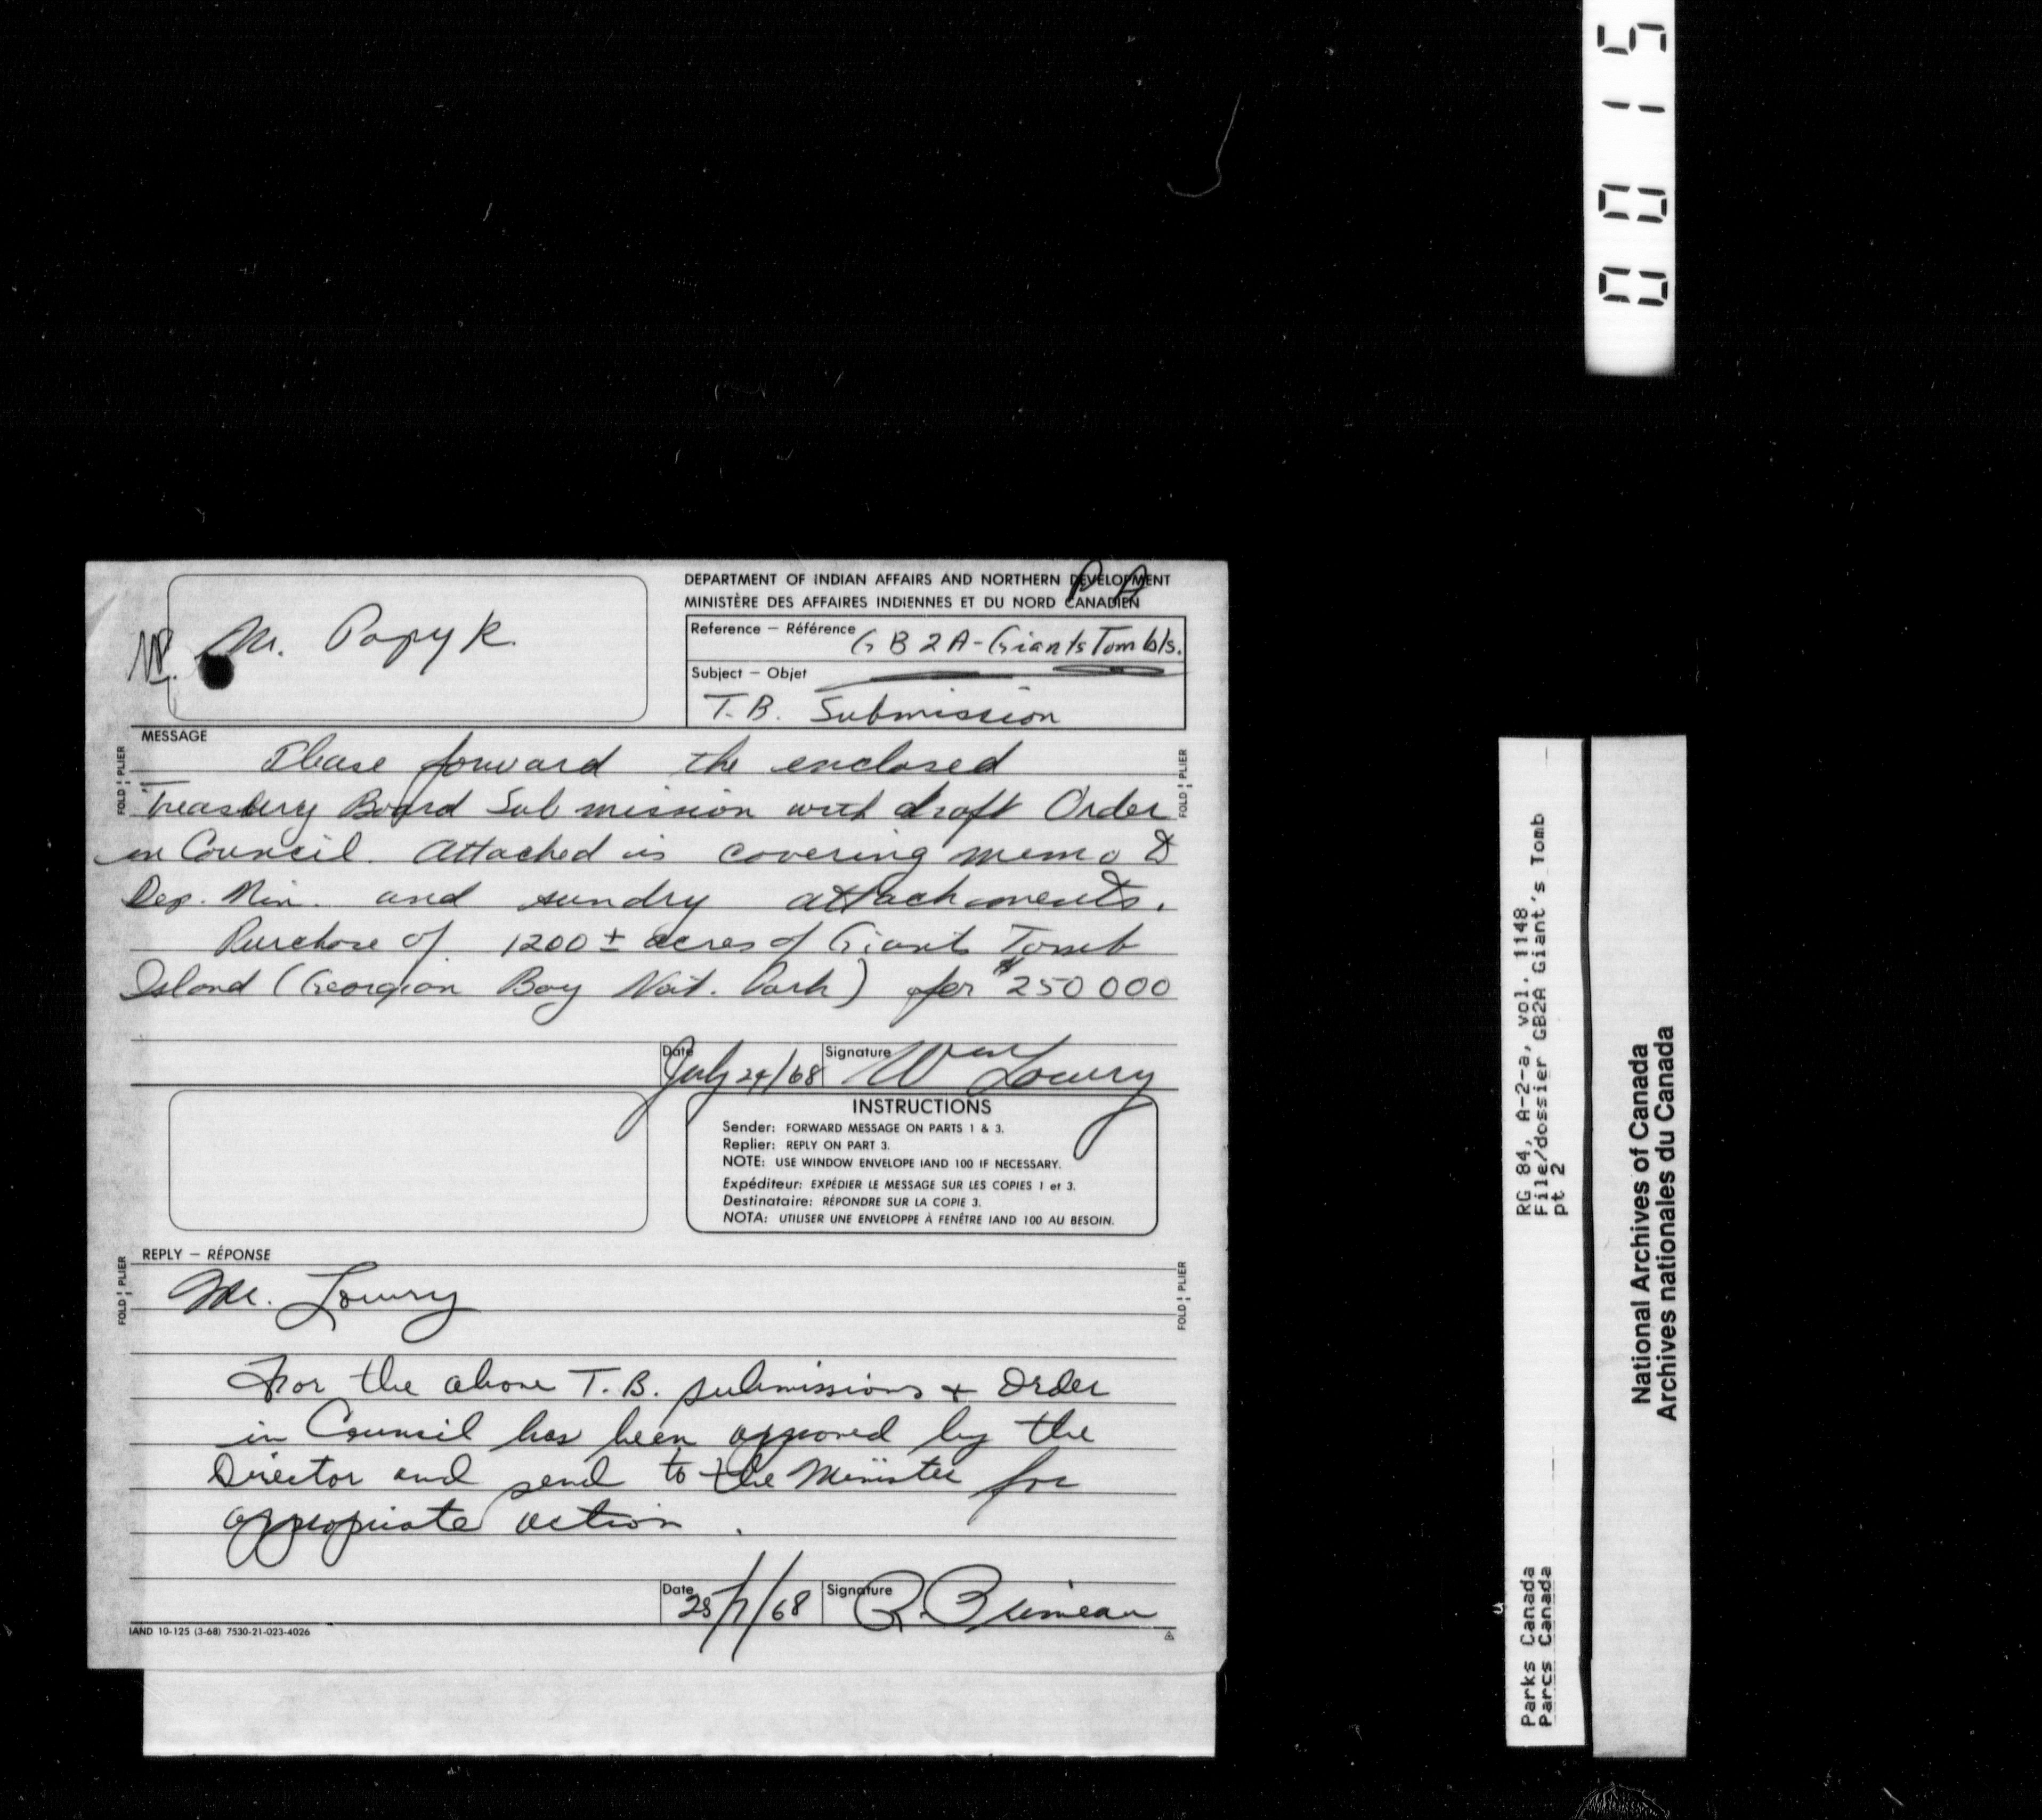 0015
DEPARTMENT OF INDIAN AFFAIRS AND NORTHERN DEVELOPMENT
MINISTÈRE DES AFFAIRES INDIENNES ET DU NORD CANADIEN
P A
Mr. Papyk.
Reference – Référence
GB2A-Giants Tomb Is.
Subject – Objet
T.B. Submission
MESSAGE
FOLD PLIER
FOLD PLIER
Please forward the enclosed
Treasury Board Submission with draft Order
in Council. Attached is covering memo to
Dep. Min. and sundry attachments.
Purchase of 1200 ± acres of Giants Tomb
Island (Georgian Bay Nat. Park) for $250 000
Date
July 24/68
Signature
Wm Lowry
INSTRUCTIONS
Sender: FORWARD MESSAGE ON PARTS 1 & 3.
Replier: REPLY ON PART 3.
NOTE: USE WINDOW ENVELOPE IAND 100 IF NECESSARY.
Expéditeur: EXPÉDIER LE MESSAGE SUR LES COPIES 1 et 3.
Destinataire: RÉPONDRE SUR LA COPIE 3.
NOTA: UTILISER UNE ENVELOPPE À FENÊTRE IAND 100 AU BESOIN.
REPLY – RÉPONSE
FOLD PLIER
FOLD PLIER
Mr. Lowry
For the above T.B. submissions + Order
in Council has been approved by the
Director and send to the Minister for
appropriate action.
Date
25/7/68
Signature
R. Brimeau
IAND 10-125 (3-68) 7530-21-023-4026
RG 84, A-2-a, vol. 1148
File/dossier GB2A Giant's Tomb
pt 2
Parks Canada
Parcs Canada
National Archives of Canada
Archives nationales du Canada